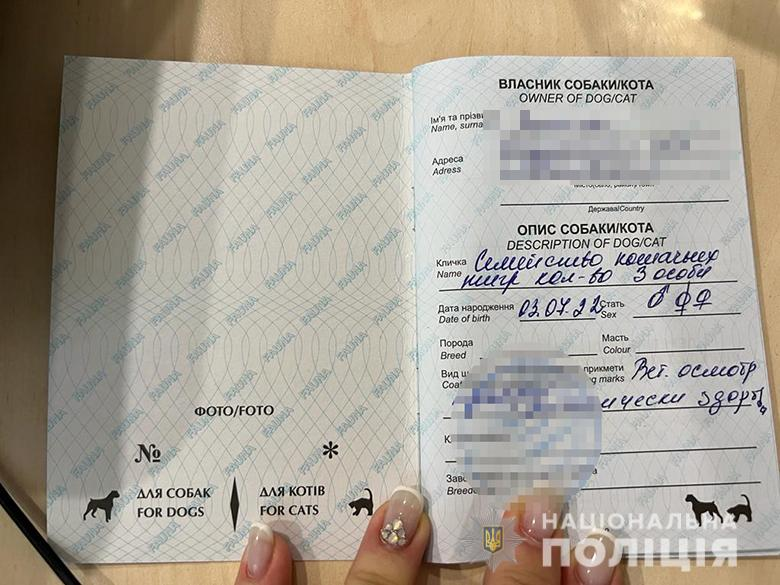 FAUNA
ФОТО/FOTO
№ *
ДЛЯ СОБАК
FOR DOGS
ДЛЯ КОТІВ
FOR CATS
ВЛАСНИК СОБАКИ/КОТА
OWNER OF DOG/CAT
Ім'я та прізви
Name, surna
Адреса
Adress
Держава/Country
ОПИС СОБАКИ/КОТА
DESCRIPTION OF DOG/CAT
Кличка Семейство кошачьих
Name тигр кол-во 3 особи
Дата народження 03.07.22 Стать
Date of birth Sex
Порода Масть
Breed Colour
Вид ш прикмети Вет. осмотр
Coat ng marks
ически здоры
Заве
Breede
НАЦІОНАЛЬНА
ПОЛІЦІЯ